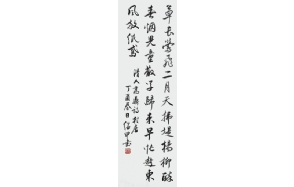 草长莺飞二月天拂堤杨柳醉
春烟儿童散学归来早忙趁东
风放纸鸢
清人高鼎诗村居
丁酉春日